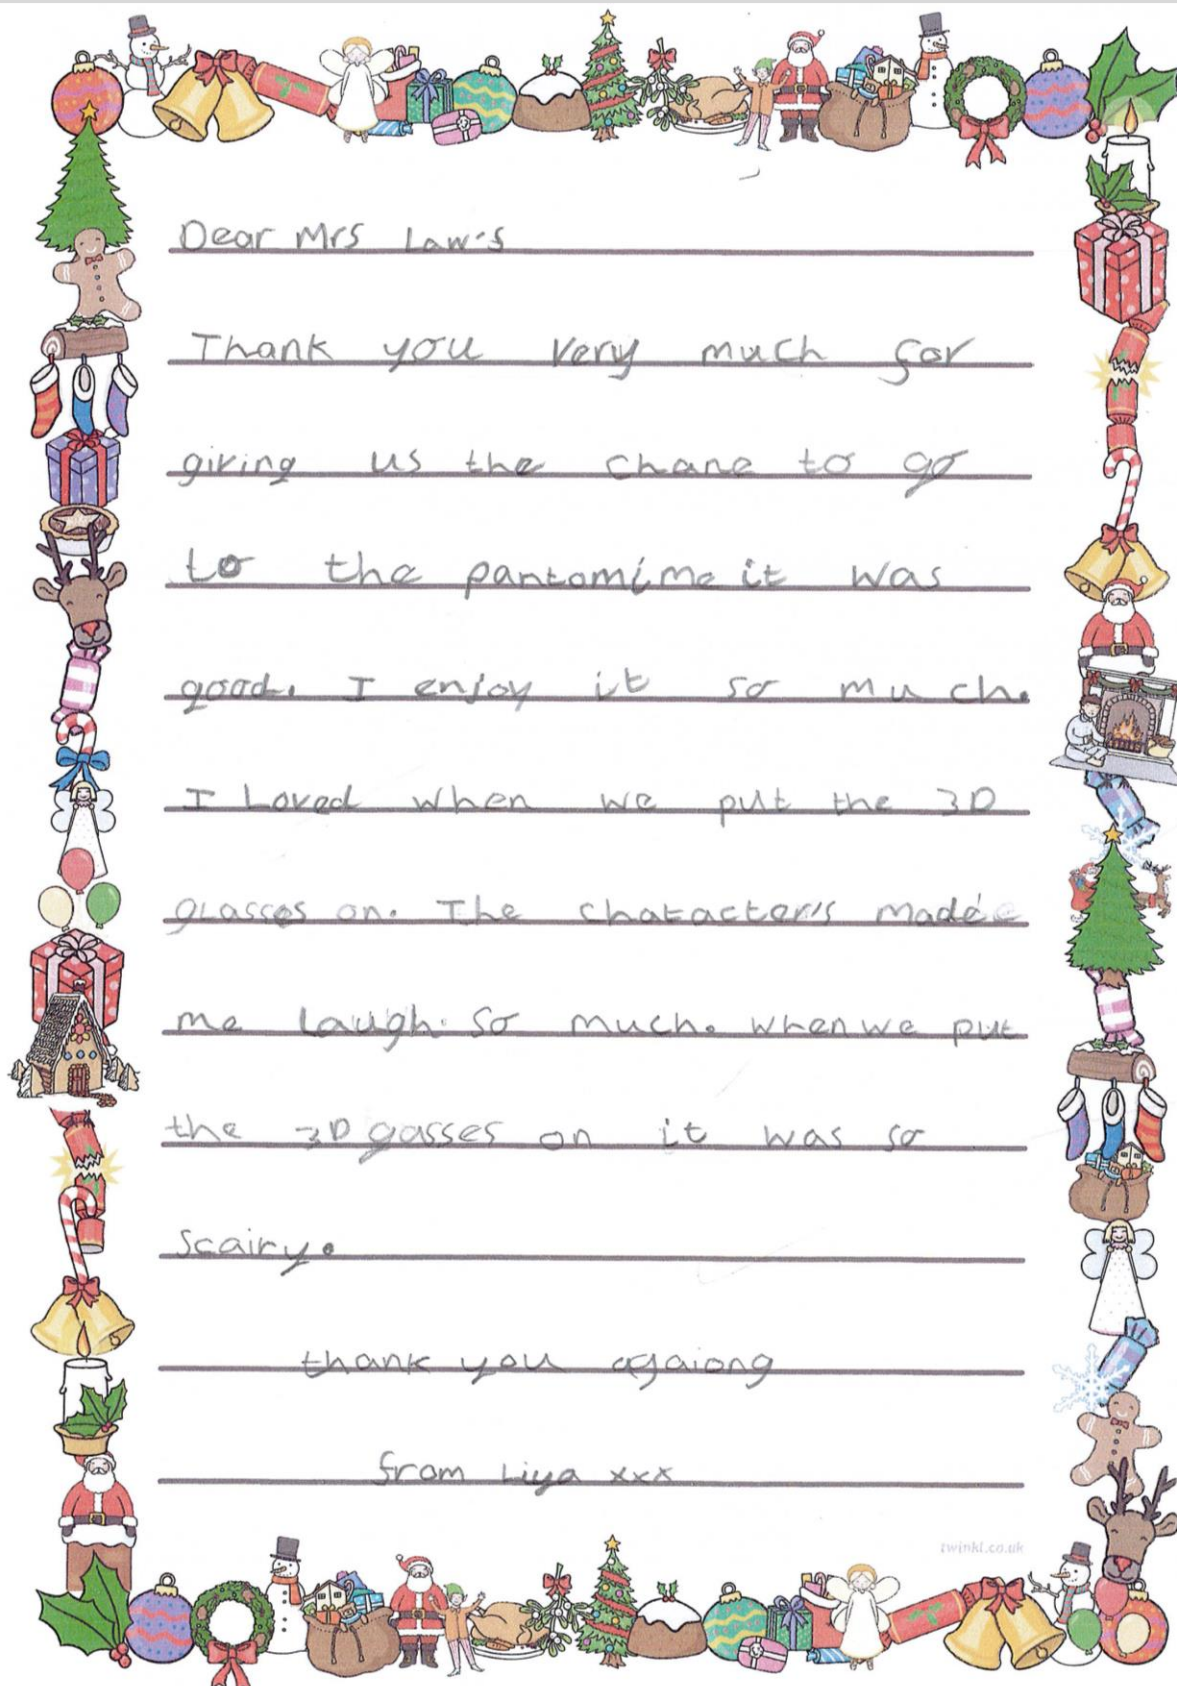 Dear Mrs Law's
Thank you very much for
giving us the chane to go
to the pantomime it was
good. I enjoy it so much.
I Loved when we put the 3D
glasses on. The chatacter's made
me Laugh so much. when we put
the 3D gasses on it was so
scairy.
thank you agaiong
from Liya xxx
twinkl.co.uk